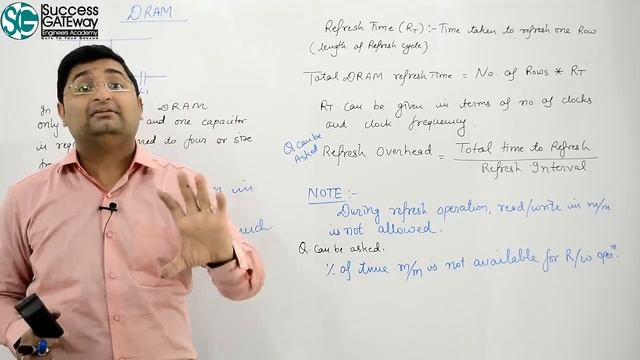 SG
Success
GATEway
Engineers Academy
GATE To Your DREAMS
DRAM
In DRAM
only and one capacitor
is req to four or six
in
much
Refresh Time (RT) :- Time taken to refresh one Row
(length of Refresh cycle)
Total DRAM refresh Time = No. of Rows * RT
RT can be given in terms of no of clocks
and clock frequency.
Q. can be
Asked
Refresh Overhead = Total time to Refresh
Refresh Interval
NOTE :-
During refresh operation, read/write in m/m
is not allowed.
Q. can be asked.
% of time m/m is not available for R/w operⁿ.